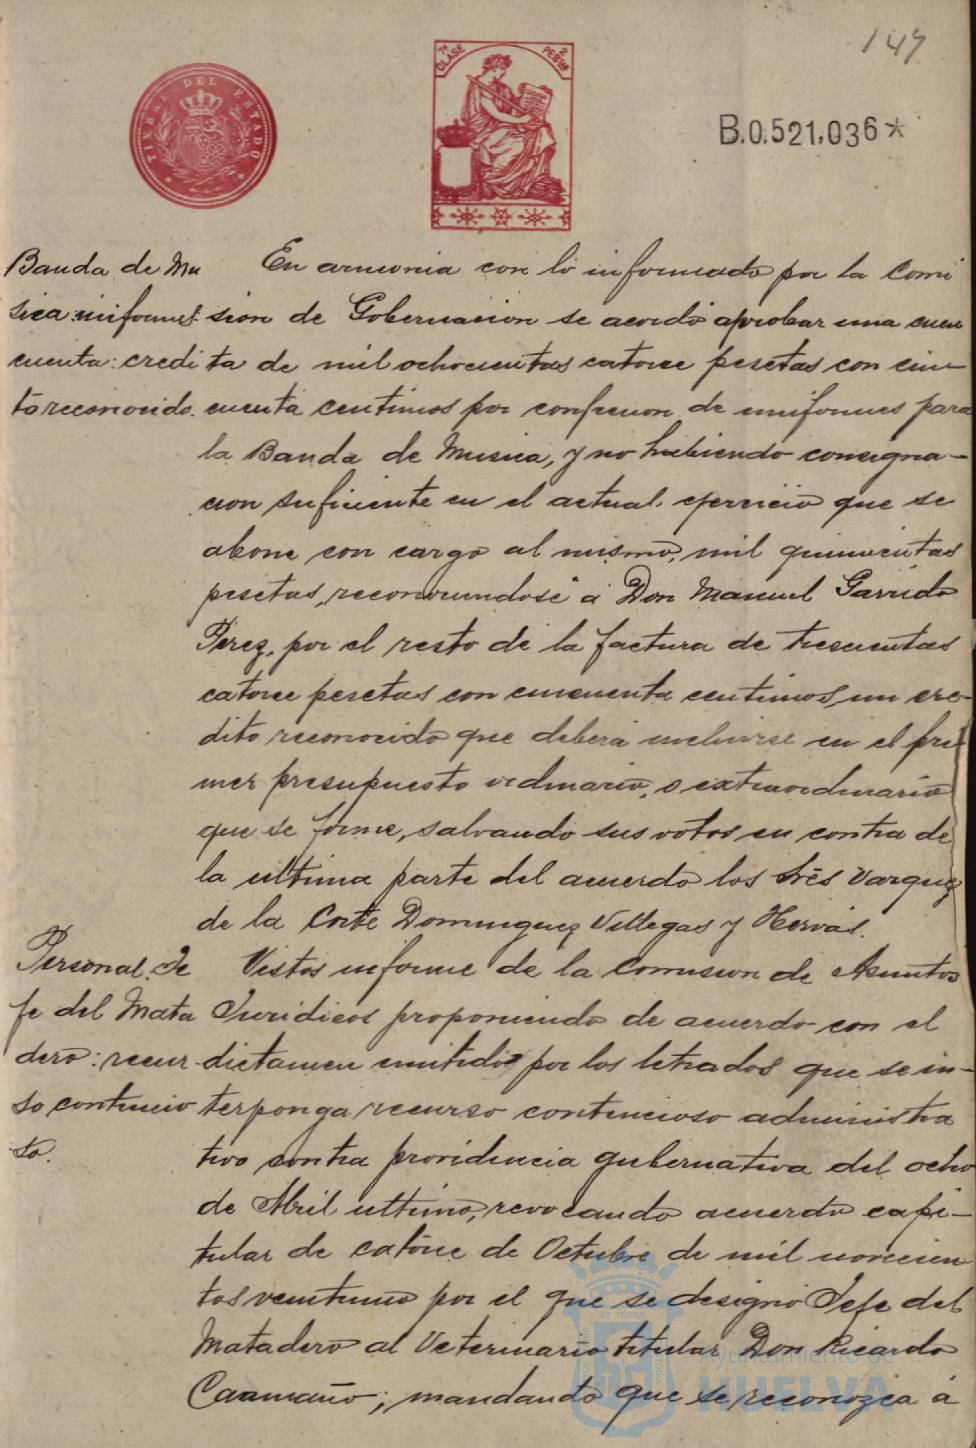 147
TIMBRE DEL ESTADO
7ª CLASE
2 PESTAS
B.0.521,036*
Banda de Mu
sica: uniformes
cuenta: credi
to reconocido.
En armonia con lo informado por la Comi
sion de Gobernacion se acordo aprobar una cuen
ta de mil ochocientas catorce pesetas con cin-
cuenta centimos por confeccion de uniformes para
la Banda de Musica, y no habiendo consigna-
cion suficiente en el actual ejercicio que se
abone con cargo al mismo, mil quinientas
pesetas, reconociendose á Don Manuel Garrido
Perez, por el resto de la factura de trescientas
catorce pesetas con cincuenta centimos, un cre-
dito reconocido que deberá incluirse en el pri
mer presupuesto ordinario, o extraordinario
que se forme, salvando sus votos en contra de
la ultima parte del acuerdo los Srés Vazquez
de la Corte Dominguez Villegas y Hervás.
Personal. Je
fe del Mata
dero: recur
so contencio
so.
Vistos informe de la Comision de Asuntos
Juridicos proponiendo de acuerdo con el
dictamen emitido por los letrados que se in-
terponga recurso contencioso administra
tivo contra providencia gubernativa del ocho
de Abril ultimo, revocando acuerdo capi-
tular de catorce de Octubre de mil novecien
tos veintiuno por el que se designó Jefe del
Matadero al Veterinario titular Don Ricardo
Caamaño; mandando que se reconozca á
Ayuntamiento de
HUELVA